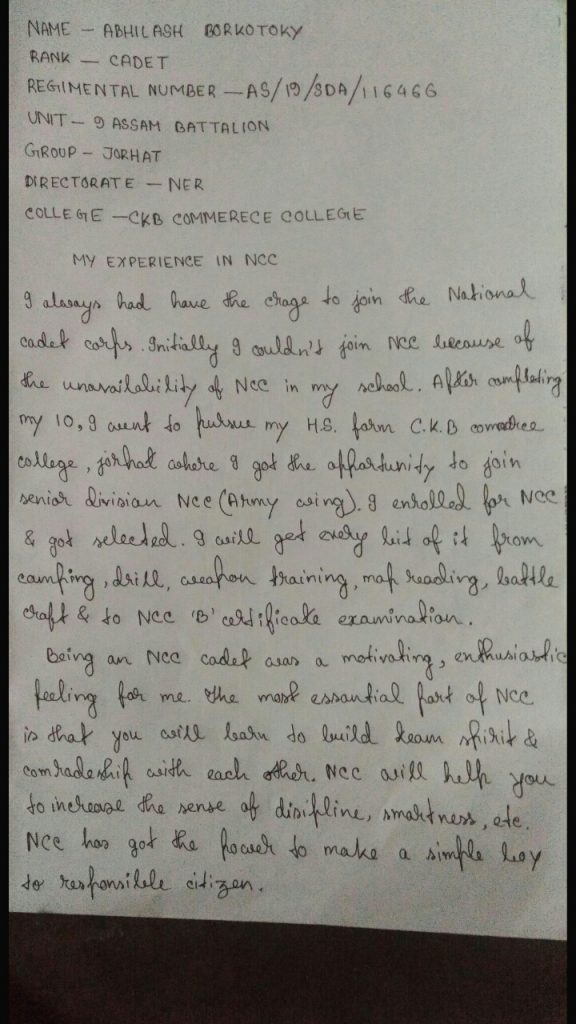 NAME – ABHILASH BORKOTOKY
RANK – CADET
REGIMENTAL NUMBER – AS/19/SDA/116466
UNIT – 9 ASSAM BATTALION
GROUP – JORHAT
DIRECTORATE – NER
COLLEGE – CKB COMMERECE COLLEGE
MY EXPERIENCE IN NCC
I always had have the crage to join the National
cadet corps. Initially I couldn't join NCC because of
the unavailability of NCC in my school. After completing
my 10, I went to pursue my H.S. form C.K.B commerce
college, jorhat where I got the opportunity to join
senior division NCC (Army wing). I enrolled for NCC
& got selected. I will get every bit of it from
camping, drill, weapon training, map reading, battle
craft & to NCC 'B' certificate examination.
Being an NCC cadet was a motivating, enthusiastic
feeling for me. The most essantial part of NCC
is that you will learn to build team spirit &
comradeship with each other. NCC will help you
to increase the sense of disipline, smartness, etc.
NCC has got the power to make a simple boy
to responsible citizen.